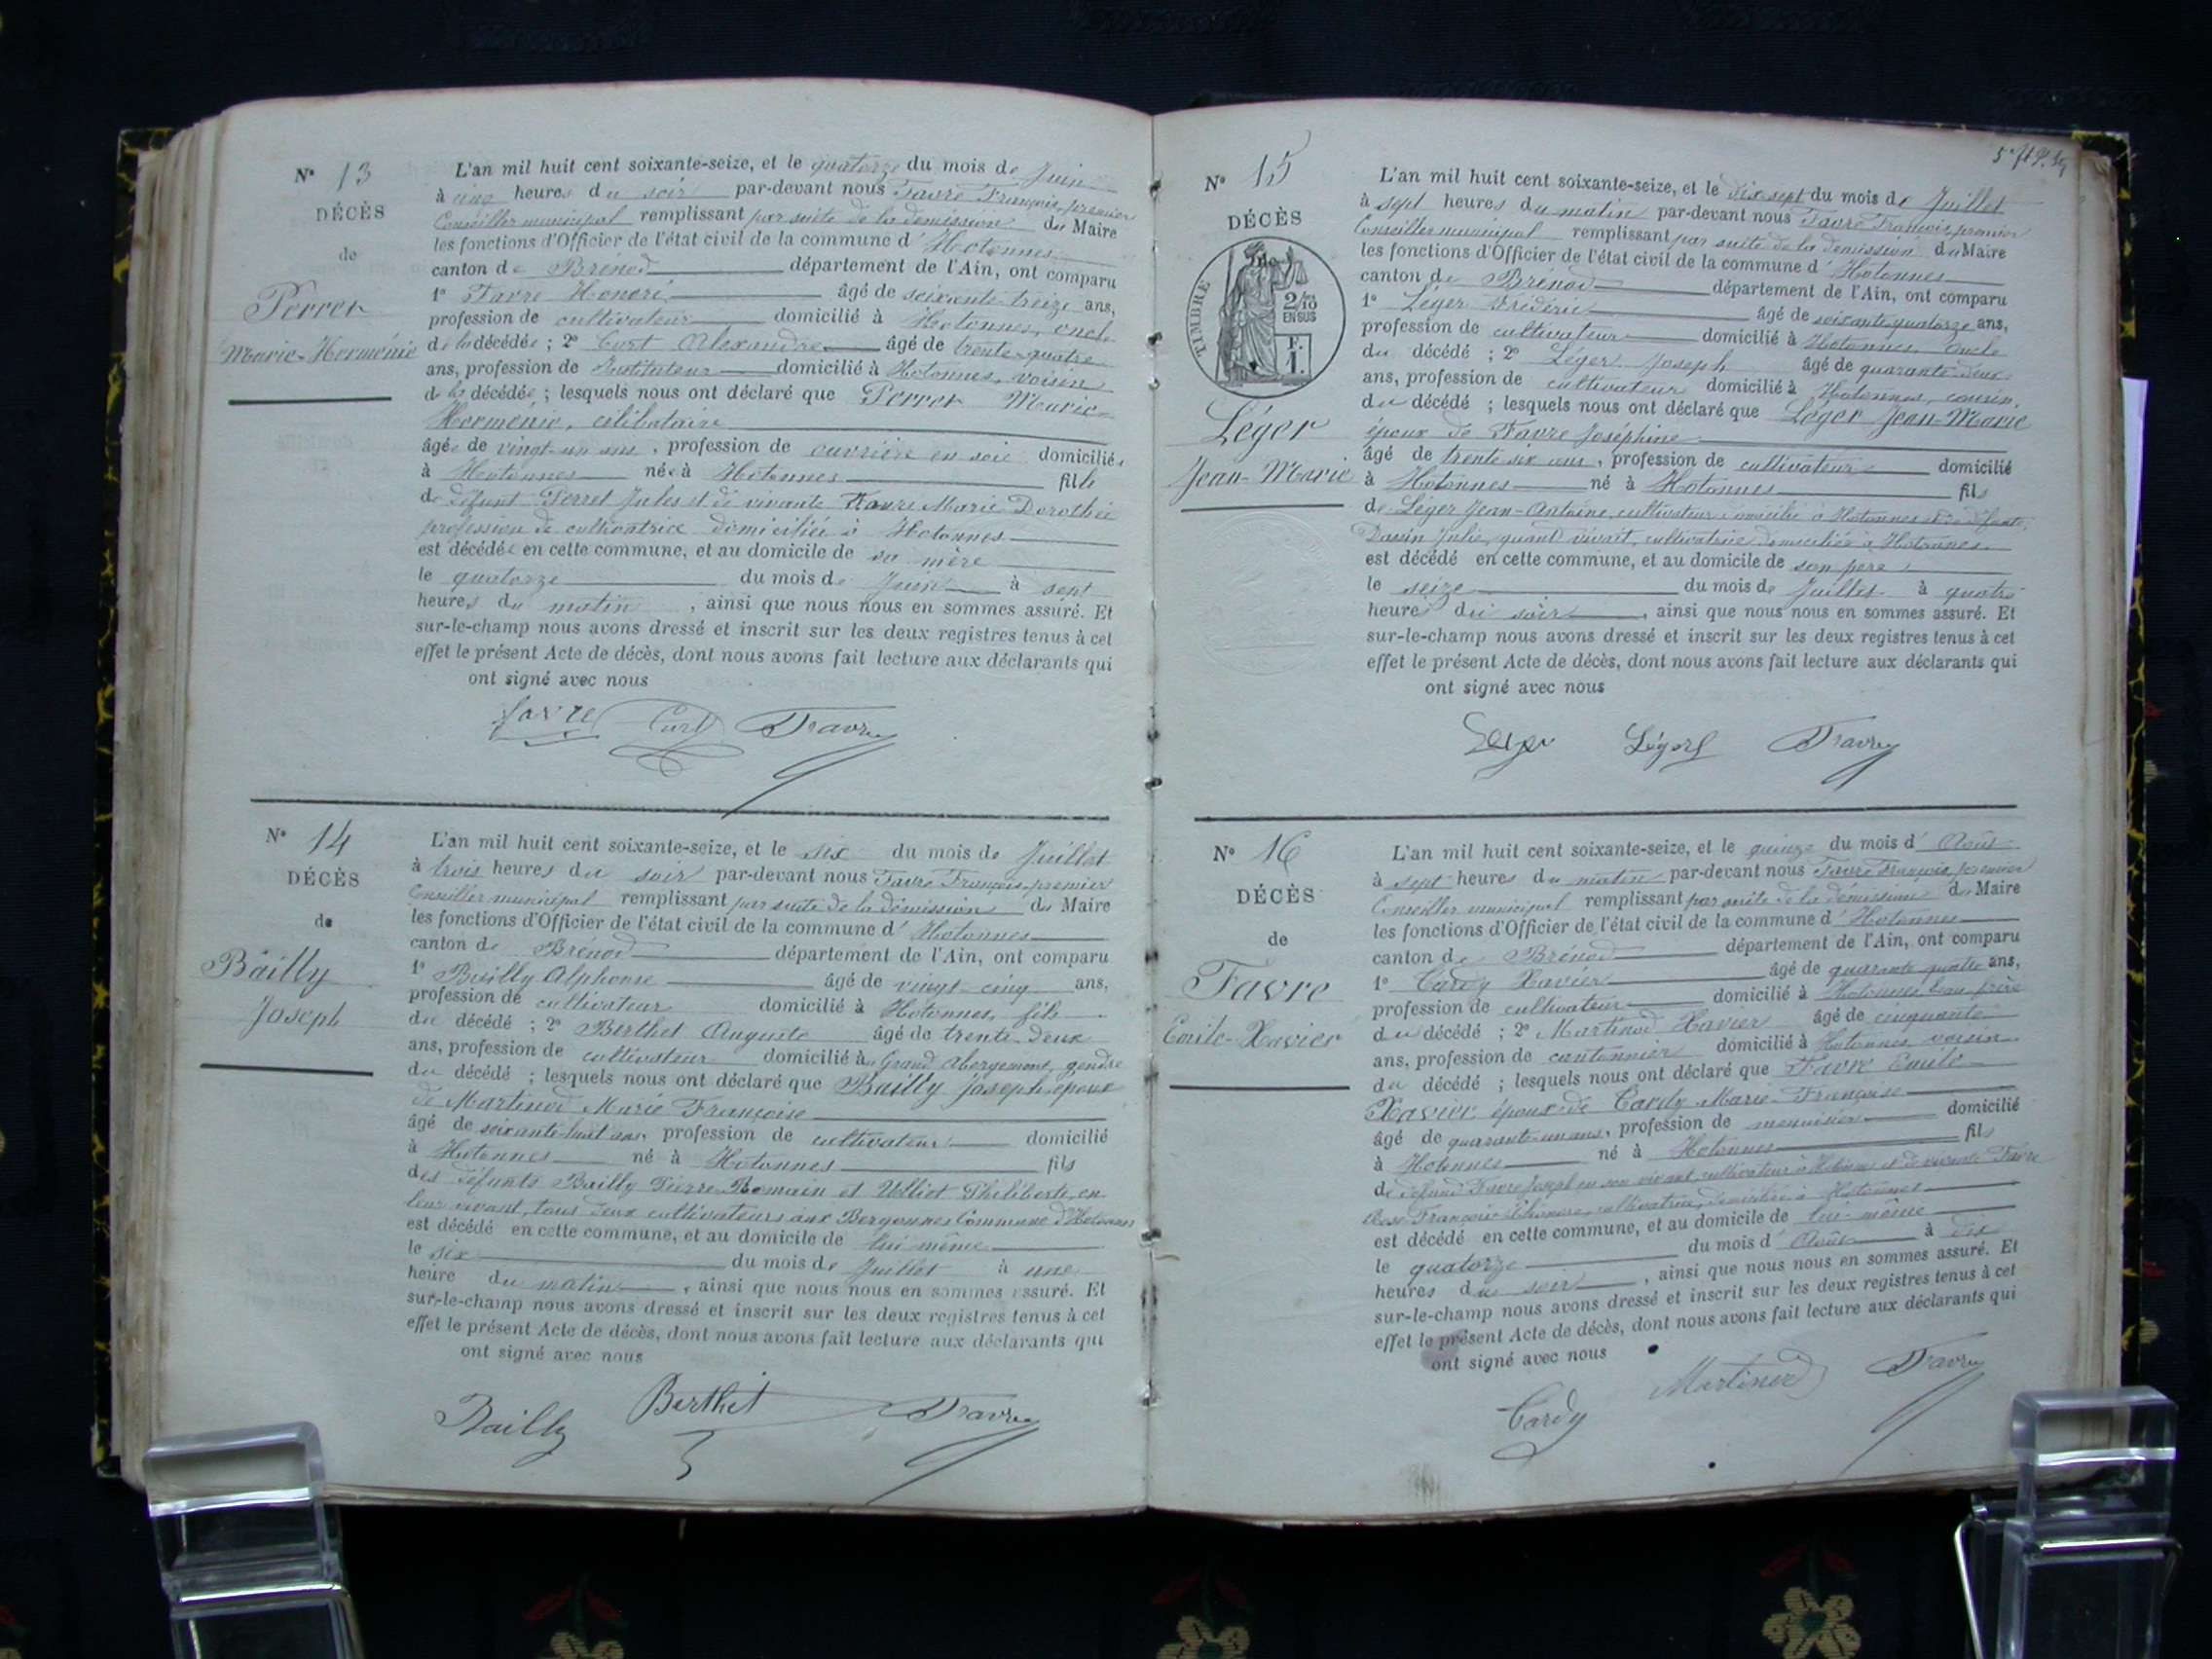 N° 13
DÉCÈS
de
Perret
Marie-Herménie
L'an mil huit cent soixante-seize, et le quatorze du mois de Juin
à cinq heures du soir par-devant nous Favre François, premier
Conseiller municipal remplissant par suite de la démission du Maire
les fonctions d'Officier de l'état civil de la commune d'Hotonnes
canton de Brénod département de l'Ain, ont comparu
1° Favre Honoré âgé de soixante-treize ans,
profession de cultivateur domicilié à Hotonnes, oncle
de la décédée ; 2° Curt Alexandre âgé de trente-quatre
ans, profession de Instituteur domicilié à Hotonnes, voisin
de la décédée ; lesquels nous ont déclaré que Perret Marie-
Herménie, célibataire
âgée de vingt-un ans, profession de ouvrière en soie domiciliée
à Hotonnes née à Hotonnes fille
de défunt Perret Jules et de vivante Favre Marie Dorothée
profession de cultivatrice domiciliée à Hotonnes
est décédée en cette commune, et au domicile de sa mère
le quatorze du mois de Juin à sept
heures du matin, ainsi que nous nous en sommes assuré. Et
sur-le-champ nous avons dressé et inscrit sur les deux registres tenus à cet
effet le présent Acte de décès, dont nous avons fait lecture aux déclarants qui
ont signé avec nous
favre Curt Favre
N° 14
DÉCÈS
de
Bailly
Joseph
L'an mil huit cent soixante-seize, et le six du mois de Juillet
à trois heures du soir par-devant nous Favre François, premier
Conseiller municipal remplissant par suite de la démission du Maire
les fonctions d'Officier de l'état civil de la commune d'Hotonnes
canton de Brénod département de l'Ain, ont comparu
1° Bailly Alphonse âgé de vingt-cinq ans,
profession de cultivateur domicilié à Hotonnes, fils
du décédé ; 2° Berthet Auguste âgé de trente-deux
ans, profession de cultivateur domicilié au Grand Abergement, gendre
du décédé ; lesquels nous ont déclaré que Bailly Joseph, époux
de Martinod Marie Françoise
âgé de soixante-huit ans, profession de cultivateur domicilié
à Hotonnes né à Hotonnes fils
des défunts Bailly Pierre Romain et Ulliet Theliberte, en
leur vivant, tous deux cultivateurs aux Bergonnes Commune d'Hotonnes
est décédé en cette commune, et au domicile de lui même
le six du mois de Juillet à une
heure du matin, ainsi que nous nous en sommes assuré. Et
sur-le-champ nous avons dressé et inscrit sur les deux registres tenus à cet
effet le présent Acte de décès, dont nous avons fait lecture aux déclarants qui
ont signé avec nous
Bailly Berthet Favre
N° 15
DÉCÈS
TIMBRE
2/10
EN SUS
F.
1.
Léger
Jean-Marie
L'an mil huit cent soixante-seize, et le dix sept du mois de Juillet
à sept heures du matin par-devant nous Favre François, premier
Conseiller municipal remplissant par suite de la démission du Maire
les fonctions d'Officier de l'état civil de la commune d'Hotonnes
canton de Brénod département de l'Ain, ont comparu
1° Léger Frédéric âgé de soixante-quatorze ans,
profession de cultivateur domicilié à Hotonnes, oncle
du décédé ; 2° Léger Joseph âgé de quarante-deux
ans, profession de cultivateur domicilié à Hotonnes, cousin,
du décédé ; lesquels nous ont déclaré que Léger Jean-Marie
époux de Favre Joséphine
âgé de trente-six ans, profession de cultivateur domicilié
à Hotonnes né à Hotonnes fils
de Léger Jean-Antoine, cultivateur domicilié à Hotonnes et de défunte
Julie, quand vivait, cultivatrice domiciliée à Hotonnes
est décédé en cette commune, et au domicile de son père
le seize du mois de Juillet à quatre
heures du soir, ainsi que nous nous en sommes assuré. Et
sur-le-champ nous avons dressé et inscrit sur les deux registres tenus à cet
effet le présent Acte de décès, dont nous avons fait lecture aux déclarants qui
ont signé avec nous
Leger Léger J Favre
N° 16
DÉCÈS
de
Favre
Emile-Xavier
L'an mil huit cent soixante-seize, et le quinze du mois d'Août
à sept heures du matin par-devant nous Favre François, premier
Conseiller municipal remplissant par suite de la démission du Maire
les fonctions d'Officier de l'état civil de la commune d'Hotonnes
canton de Brénod département de l'Ain, ont comparu
1° Cardy Xavier âgé de quarante-quatre ans,
profession de cultivateur domicilié à Hotonnes, beau-frère
du décédé ; 2° Martinod Xavier âgé de cinquante
ans, profession de cantonnier domicilié à Hotonnes, voisin
du décédé ; lesquels nous ont déclaré que Favre Emile
Xavier, époux de Cardy Marie-Françoise
âgé de quarante-un ans, profession de menuisier domicilié
à Hotonnes né à Hotonnes fils
de défunt Favre Joseph en son vivant, cultivateur à Hotonnes et de vivante Favre
Rose-Françoise Eléonore, cultivatrice, domiciliée à Hotonnes
est décédé en cette commune, et au domicile de lui-même
le quatorze du mois d'Août à dix
heures du soir, ainsi que nous nous en sommes assuré. Et
sur-le-champ nous avons dressé et inscrit sur les deux registres tenus à cet
effet le présent Acte de décès, dont nous avons fait lecture aux déclarants qui
ont signé avec nous
Cardy Martinod Favre